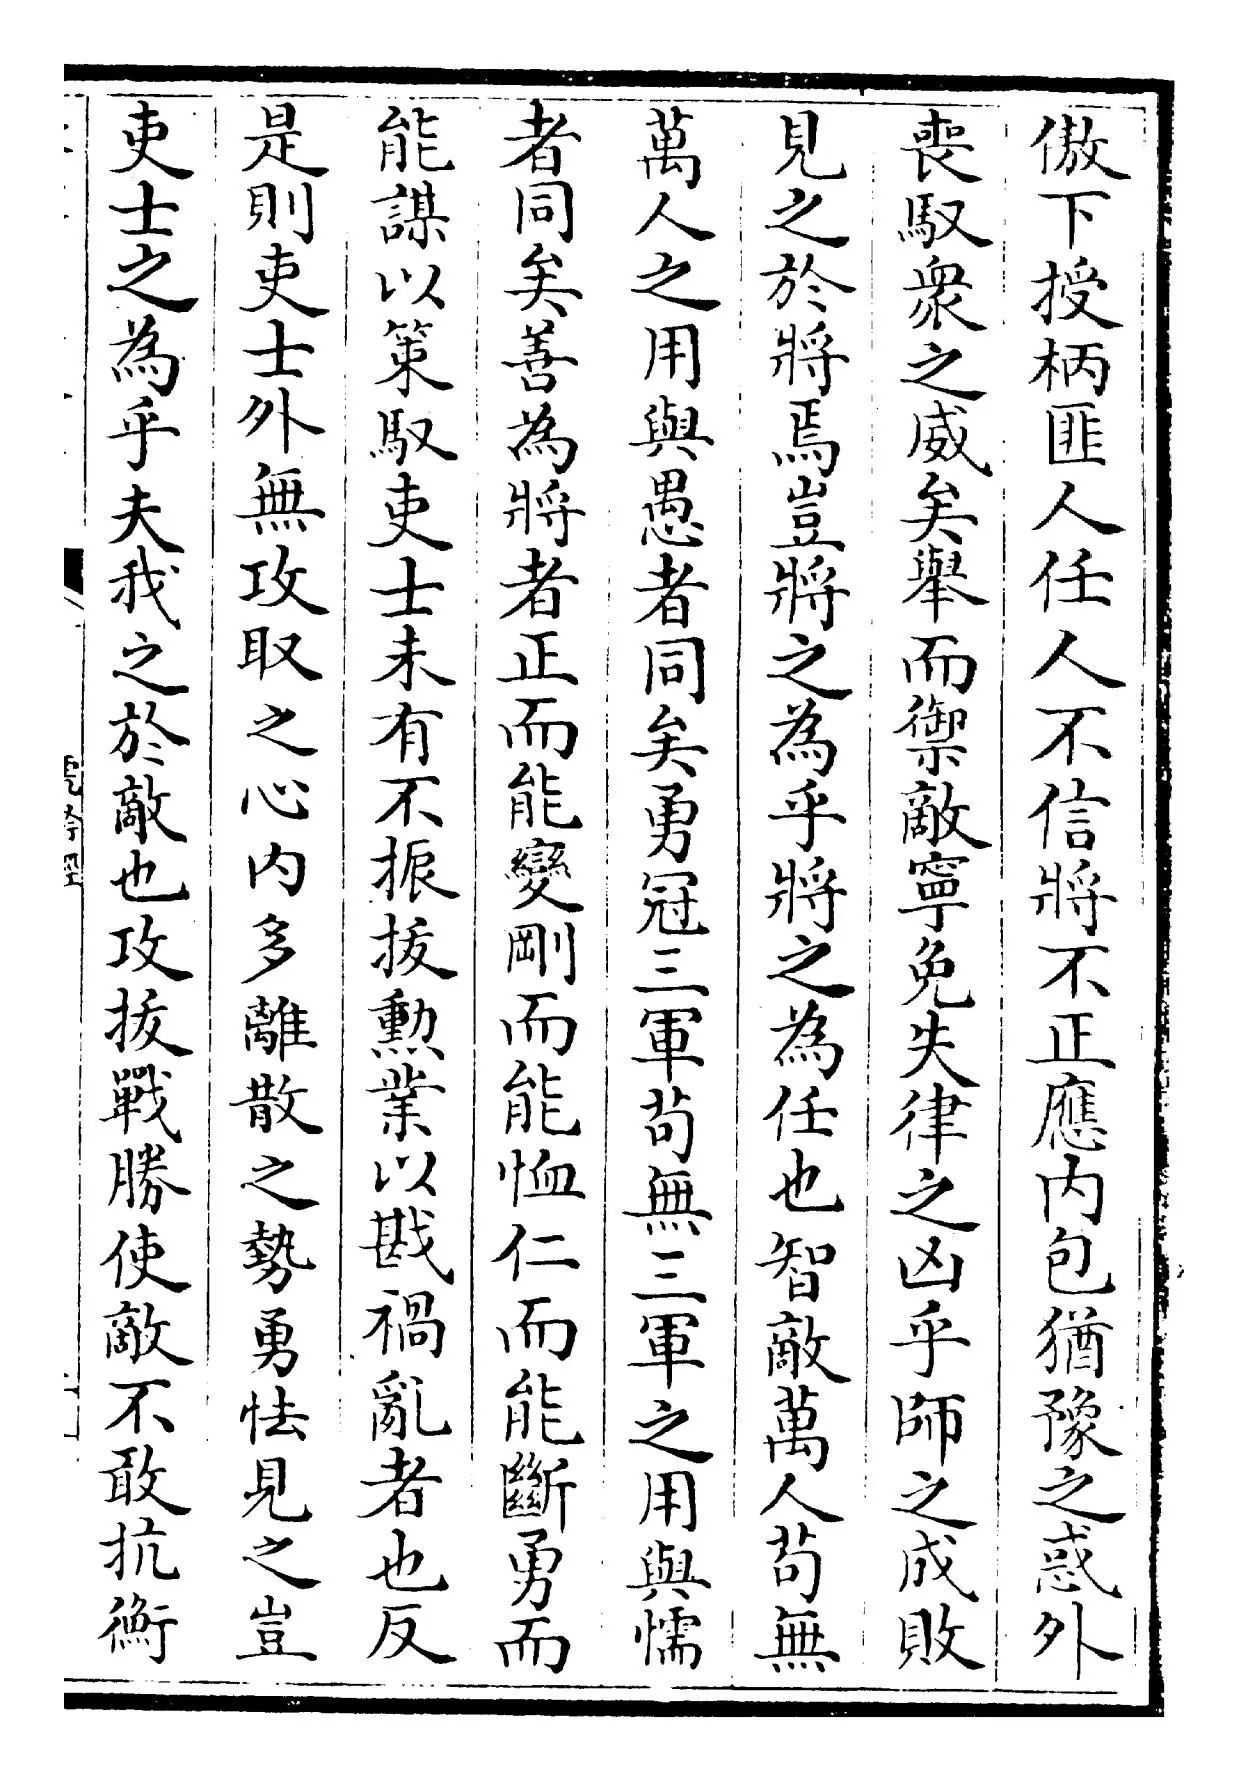 傲下授柄匪人任人不信將不正應内包猶豫之惑外
喪馭衆之威矣舉而禦敵寧免失律之凶乎師之成敗
見之於將焉豈將之為乎將之為任也智敵萬人茍無
萬人之用與愚者同矣勇冠三軍茍無三軍之用與懦
者同矣善為將者正而能變剛而能恤仁而能斷勇而
能謀以策馭吏士未有不振拔勲業以戡禍亂者也反
是則吏士外無攻取之心内多離散之勢勇怯見之豈
吏士之為乎夫我之於敵也攻拔戰勝使敵不敢抗衡
虎鈐經